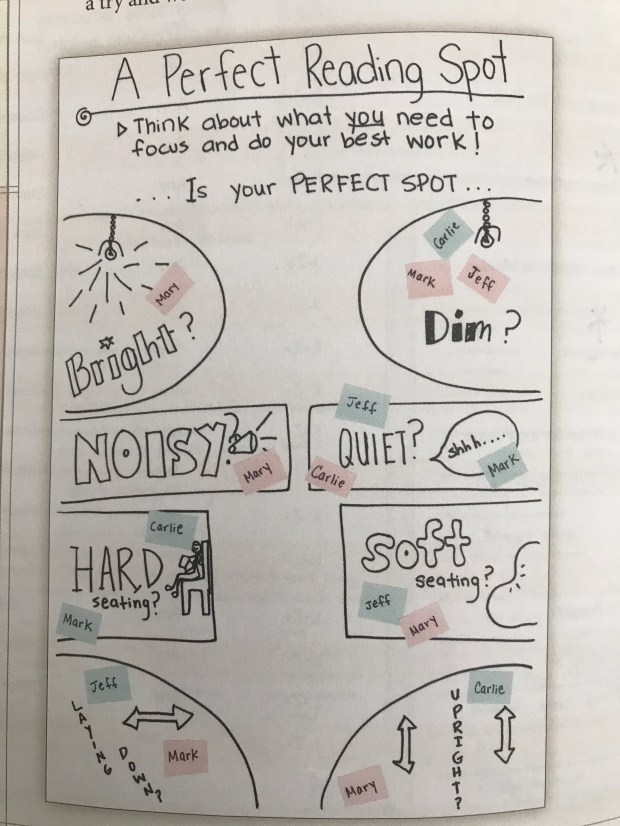 a try and
A Perfect Reading Spot
▷ Think about what you need to
focus and do your best work!
... Is your PERFECT SPOT...
Mary
Bright?
Carlie
Mark
Jeff
Dim?
NOISY?
Mary
Jeff
QUIET?
shhh....
Mark
Carlie
Carlie
HARD
seating?
Mark
Soft
seating?
Jeff
Mary
Jeff
LAYING
DOWN?
Mark
Carlie
UPRIGHT?
Mary